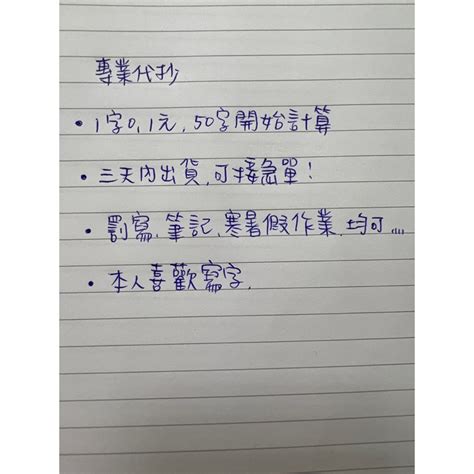 專業代抄
• 1字0.1元, 50字開始計算
• 三天內出貨,可接急單!
• 罰寫、筆記、寒暑假作業、均可....
• 本人喜歡寫字.